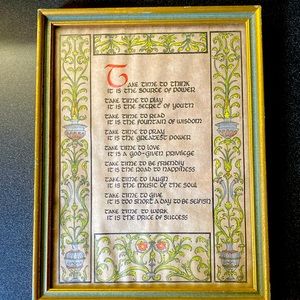 Take time to think
it is the source of power
take time to play
it is the secret of youth
take time to read
it is the fountain of wisdom
take time to pray
it is the greatest power
take time to love
it is a god-given privilege
take time to be friendly
it is the road to happiness
take time to laugh
it is the music of the soul
take time to give
it is too short a day to be selfish
take time to work
it is the price of success